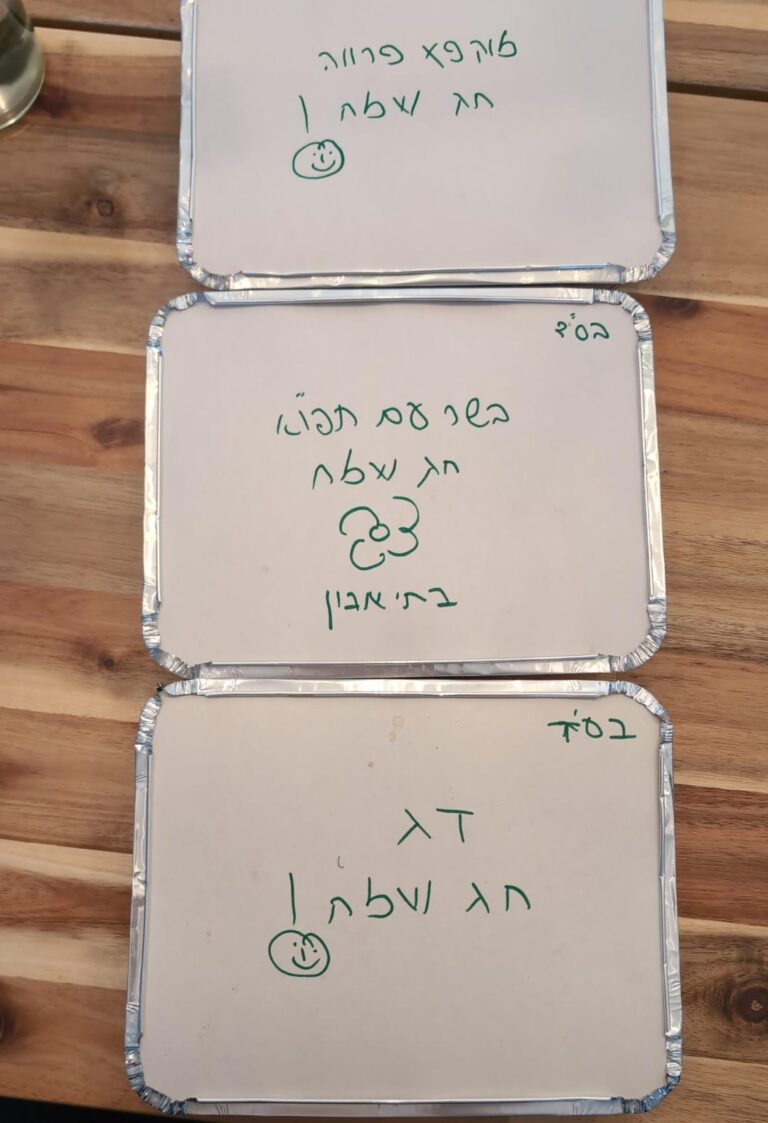 מוקפץ פרווה
חג שמח !
בס"ד
בשר עם תפו"א
חג שמח
בתיאבון
בס"ד
דג
חג שמח !